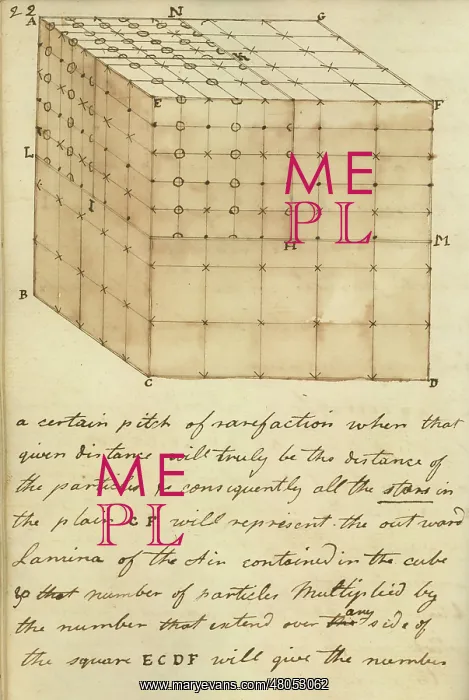 22
A N G
E F
L
I
H M
B
C D
ME
PL
a certain pitch of rarefaction when that
given distance will truly be the distance of
the particles consequently all the stars in
the plain CF will represent the outward
Lamina of the Air contained in the cube
that number of particles Multiplied by
the number that extend over the any side of
the square ECDF will give the number
ME
PL
www.maryevans.com/48053062